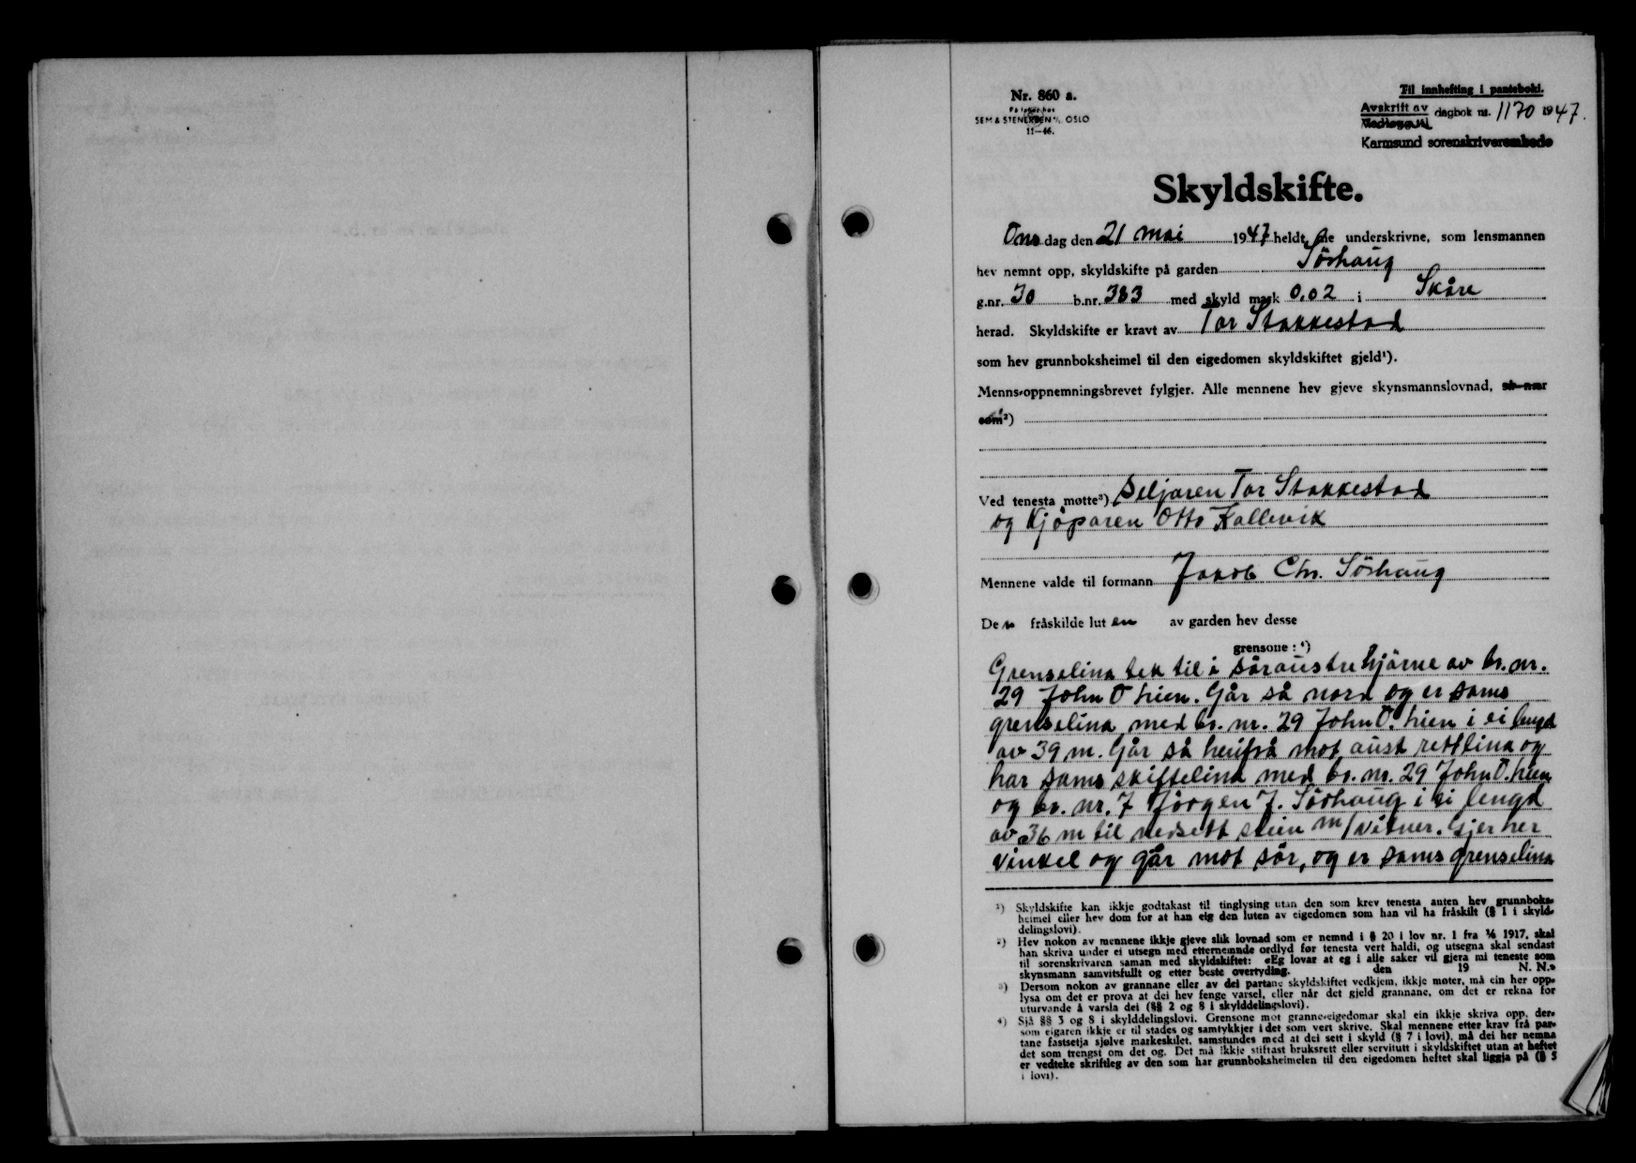 Nr. 860 a.
På lager hos
SEM & STENERSEN A/S, OSLO
11—46.
Til innhefting i panteboki.
Avskrift av dagbok nr. 1170 1947.
Vedlegg til
Karmsund sorenskriverembede
Skyldskifte.
Onsdag den 21 mai 1947 heldt me underskrivne, som lensmannen
hev nemnt opp, skyldskifte på garden Sörhaug
g.nr. 30 b.nr. 383 med skyld mark 0.02 i Skåre
herad. Skyldskifte er kravt av Tor Stakkestad
som hev grunnboksheimel til den eigedomen skyldskiftet gjeld¹).
Menns-oppnemningsbrevet fylgjer. Alle mennene hev gjeve skynsmannslovnad, so nær
som²)
Ved tenesta møtte³) Seljaren Tor Stakkestad
og Kjöparen Otto Kallevik
Mennene valde til formann Jakob Chr. Sörhaug
Den fråskilde luten av garden hev desse
grensone: ⁴)
Grenselina tek til i söraustre hjörne av br. nr.
29 John O. Lien. Går så nord og er sams
grenselina med br. nr. 29 John O. Lien i ei lengd
av 39 m. Går så herifrå mot aust rettlina og
har sams skiftelina med br. nr. 29 John O. Lien
og br. nr. 7 Jörgen J. Sörhaug i ei lengd
av 36 m til nedsett stein m/vitner. Gjer her
vinkel og går mot sör, og er sams grenselina
¹) Skyldskifte kan ikkje godtakast til tinglysing utan den som krev tenesta anten hev grunnboks-
heimel eller hev dom for at han eig den luten av eigedomen som han vil ha fråskilt (§ 1 i skyld-
delingslovi).
²) Hev nokon av mennene ikkje gjeve slik lovnad som er nemnd i § 20 i lov nr. 1 fra 1/6 1917, skal
han skriva under ei utsegn med etternemnde ordlyd før tenesta vert haldi, og utsegna skal sendast
til sorenskrivaren saman med skyldskiftet: «Eg lovar at eg i alle saker vil gjera mi teneste som
skynsmann samvitsfullt og etter beste overtyding. den 19 N. N.»
³) Dersom nokon av grannane eller av dei partane skyldskiftet vedkjem, ikkje møter, må ein her opp-
lysa om det er prova at dei hev fenge varsel, eller når det gjeld grannane, om det er rekna for
uturvande å varsla dei (§§ 2 og 8 i skylddelingslovi).
⁴) Sjå §§ 3 og 8 i skylddelingslovi. Grensone mot granne-eigedomar skal ein ikkje skriva opp, der-
som eigaren ikkje er til stades og samtykkjer i det som vert skrive. Skal mennene etter krav frå par-
tane fastsetja sjølve markeskilet, samstundes med at dei sett i skyld (§ 7 i lovi), må dei her nemna
det som trengst om det og. Det må ikkje stiftast bruksrett eller servitutt i skyldskiftet utan at heftet
er vedteke skriftleg av den som har grunnboksheimelen til den eigedomen heftet skal liggja på (§ 5
i lovi).